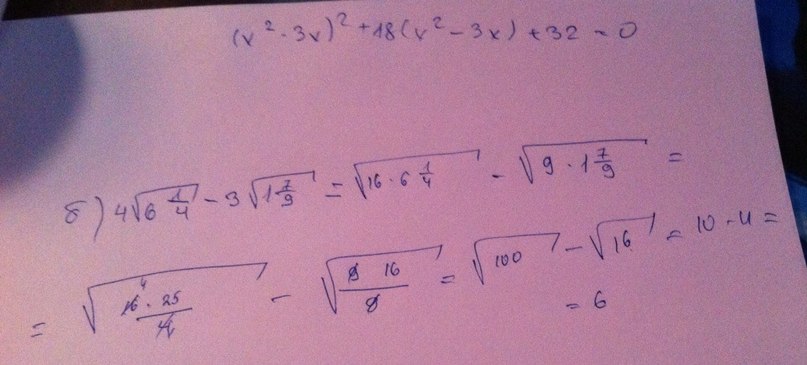 (x² - 3x)² + 18(x² - 3x) + 32 = 0
б) 4√(6 1/4) - 3√(1 7/9) = √(16 · 6 1/4) - √(9 · 1 7/9) =
= √(16 · 25 / 4) - √(9 16 / 9) = √100 - √16 = 10 - 4 =
= 6